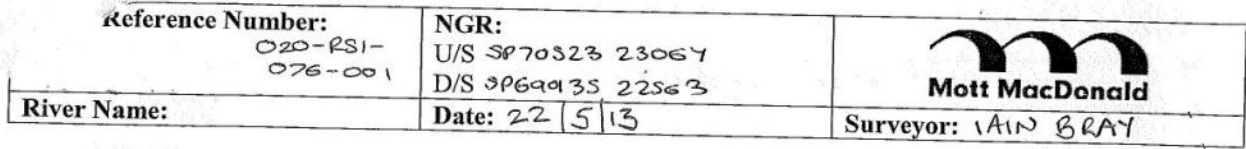 Reference Number:
020-RSI-
076-001
NGR:
U/S SP70323 23064
D/S SP69935 22563
Mott MacDonald
River Name:
Date: 22/5/13
Surveyor: IAIN BRAY